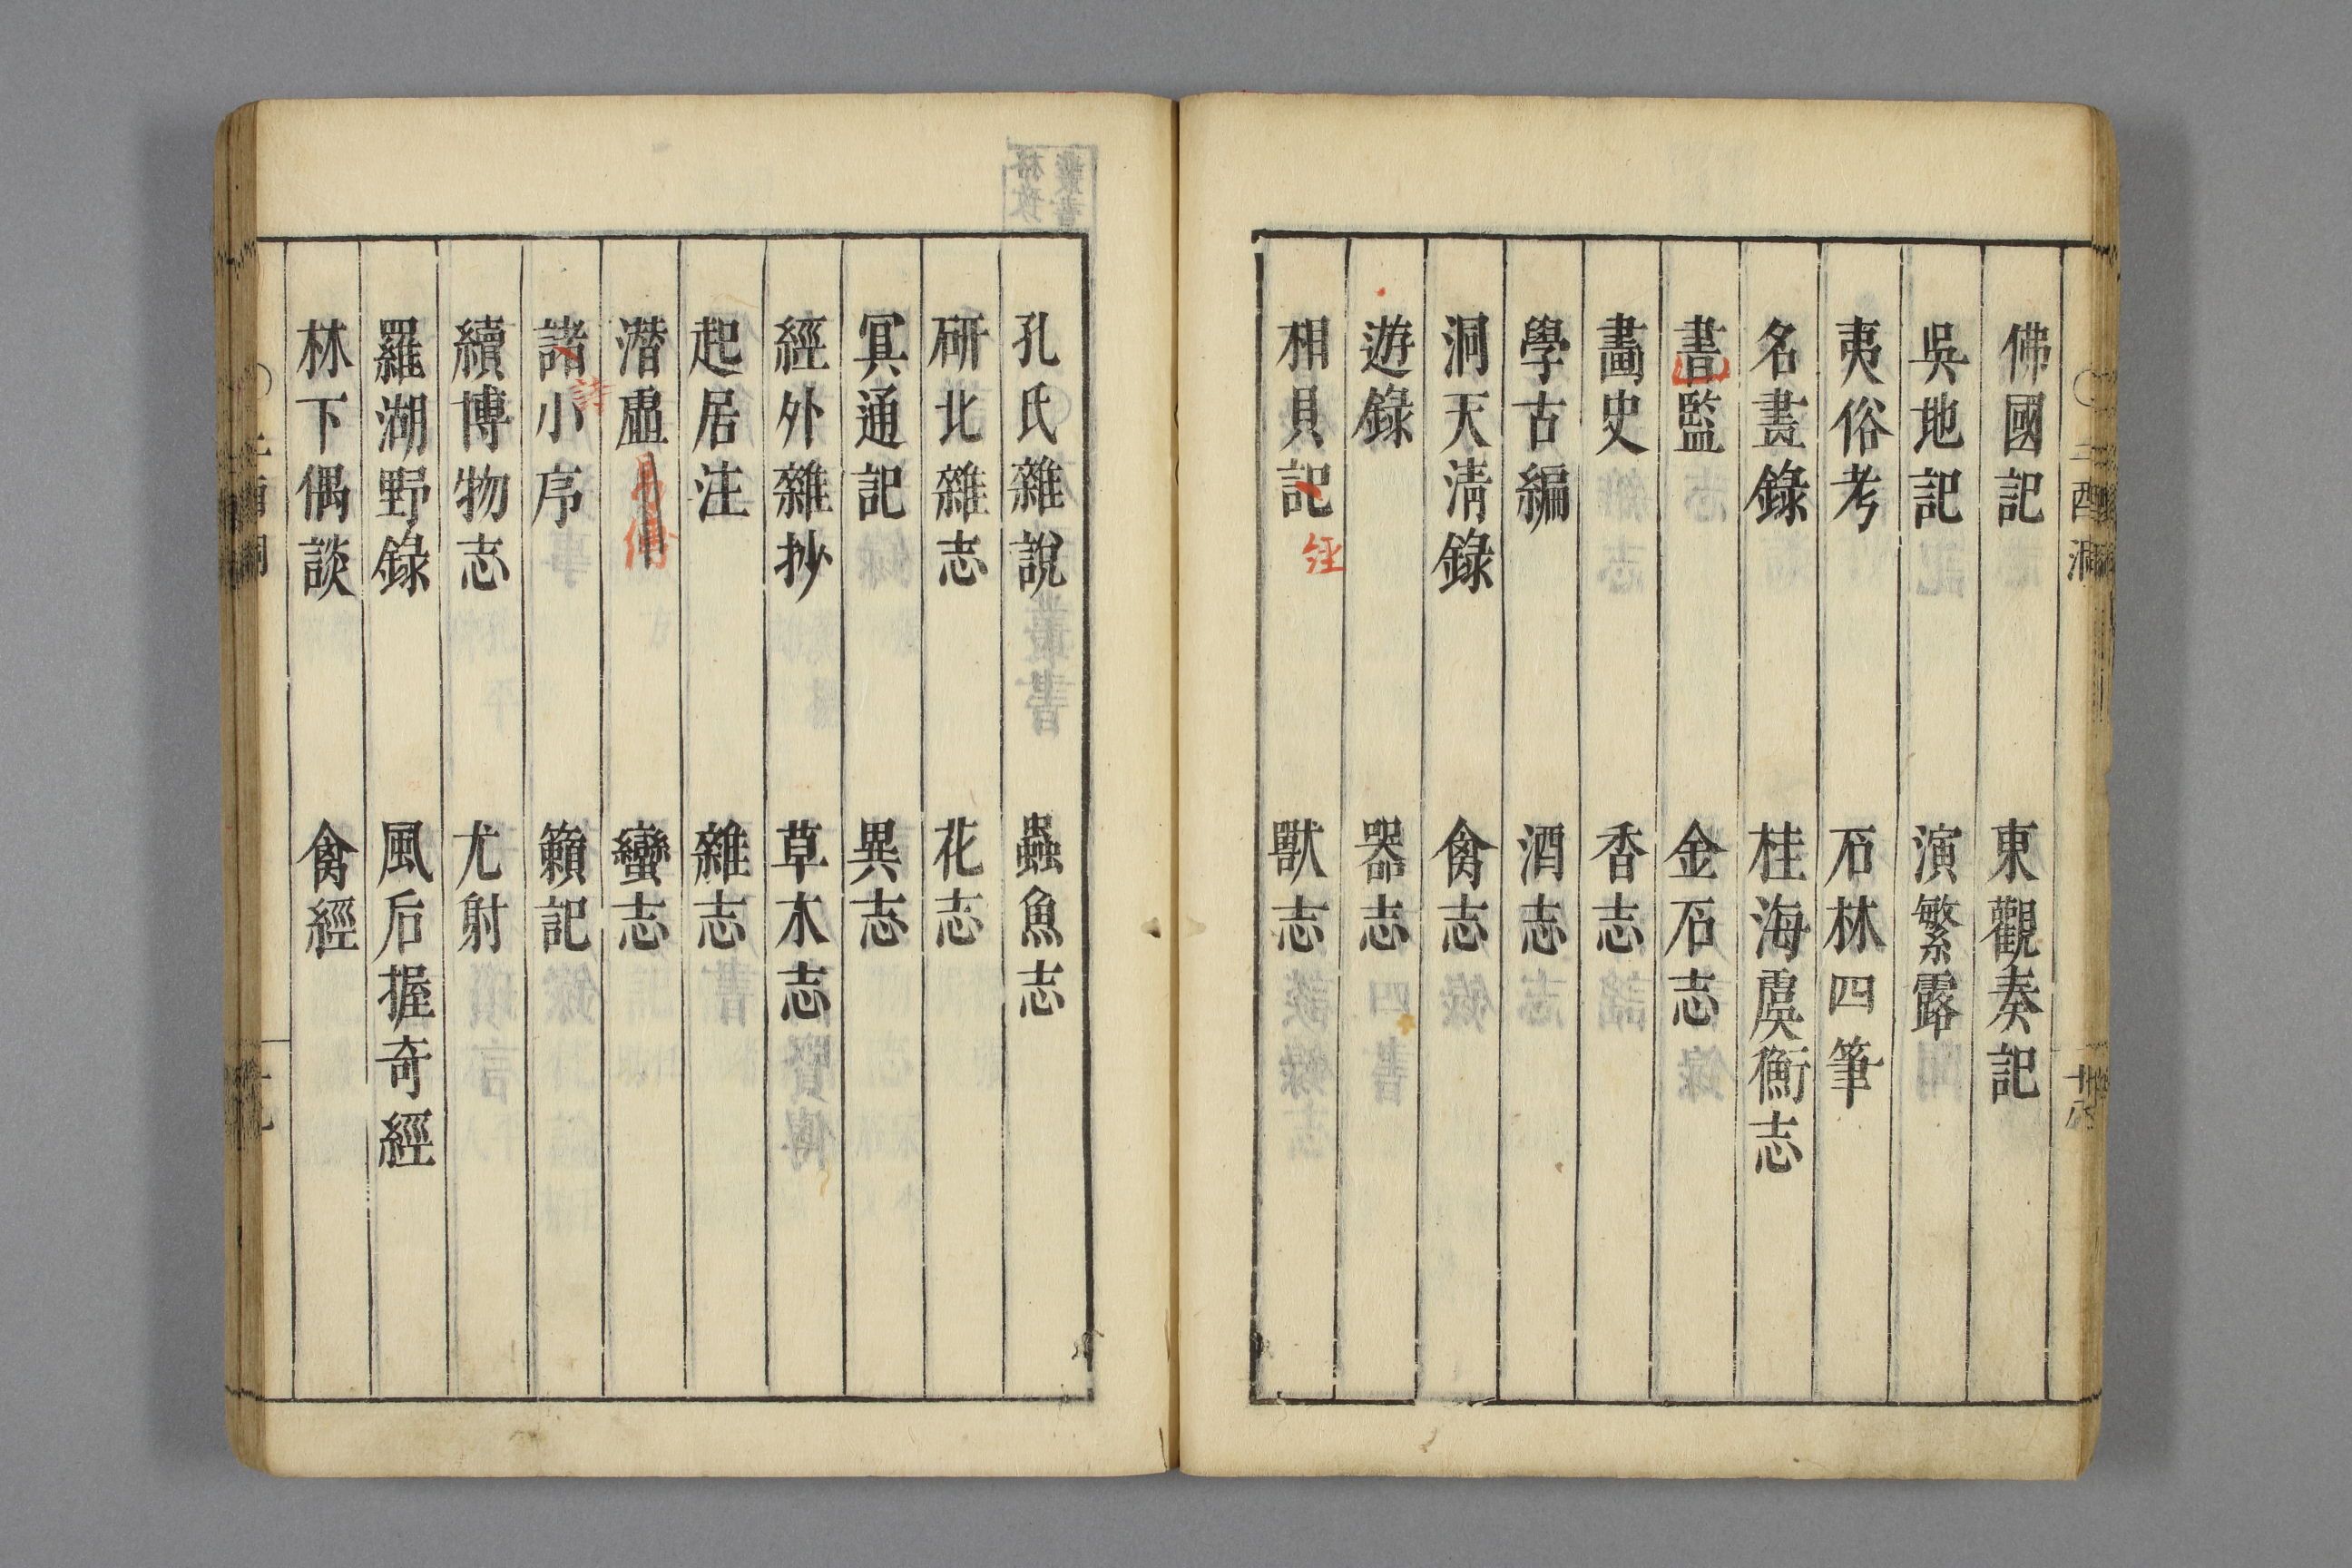 佛國記
東觀奏記
吳地記
演繁露
夷俗考
石林四筆
名畫錄
桂海虞衡志
書監
金石志
畵史
香志
學古編
酒志
洞天清錄
禽志
遊錄
器志
相貝記
經
獸志
孔氏雜說
蟲魚志
硏北雜志
花志
冥通記
異志
經外雜抄
草木志
起居注
雜志
潛虛
易傳
蠻志
諸小序
詩
籟記
續博物志
尤射
羅湖野錄
風后握奇經
林下偶談
禽經
二酉洞